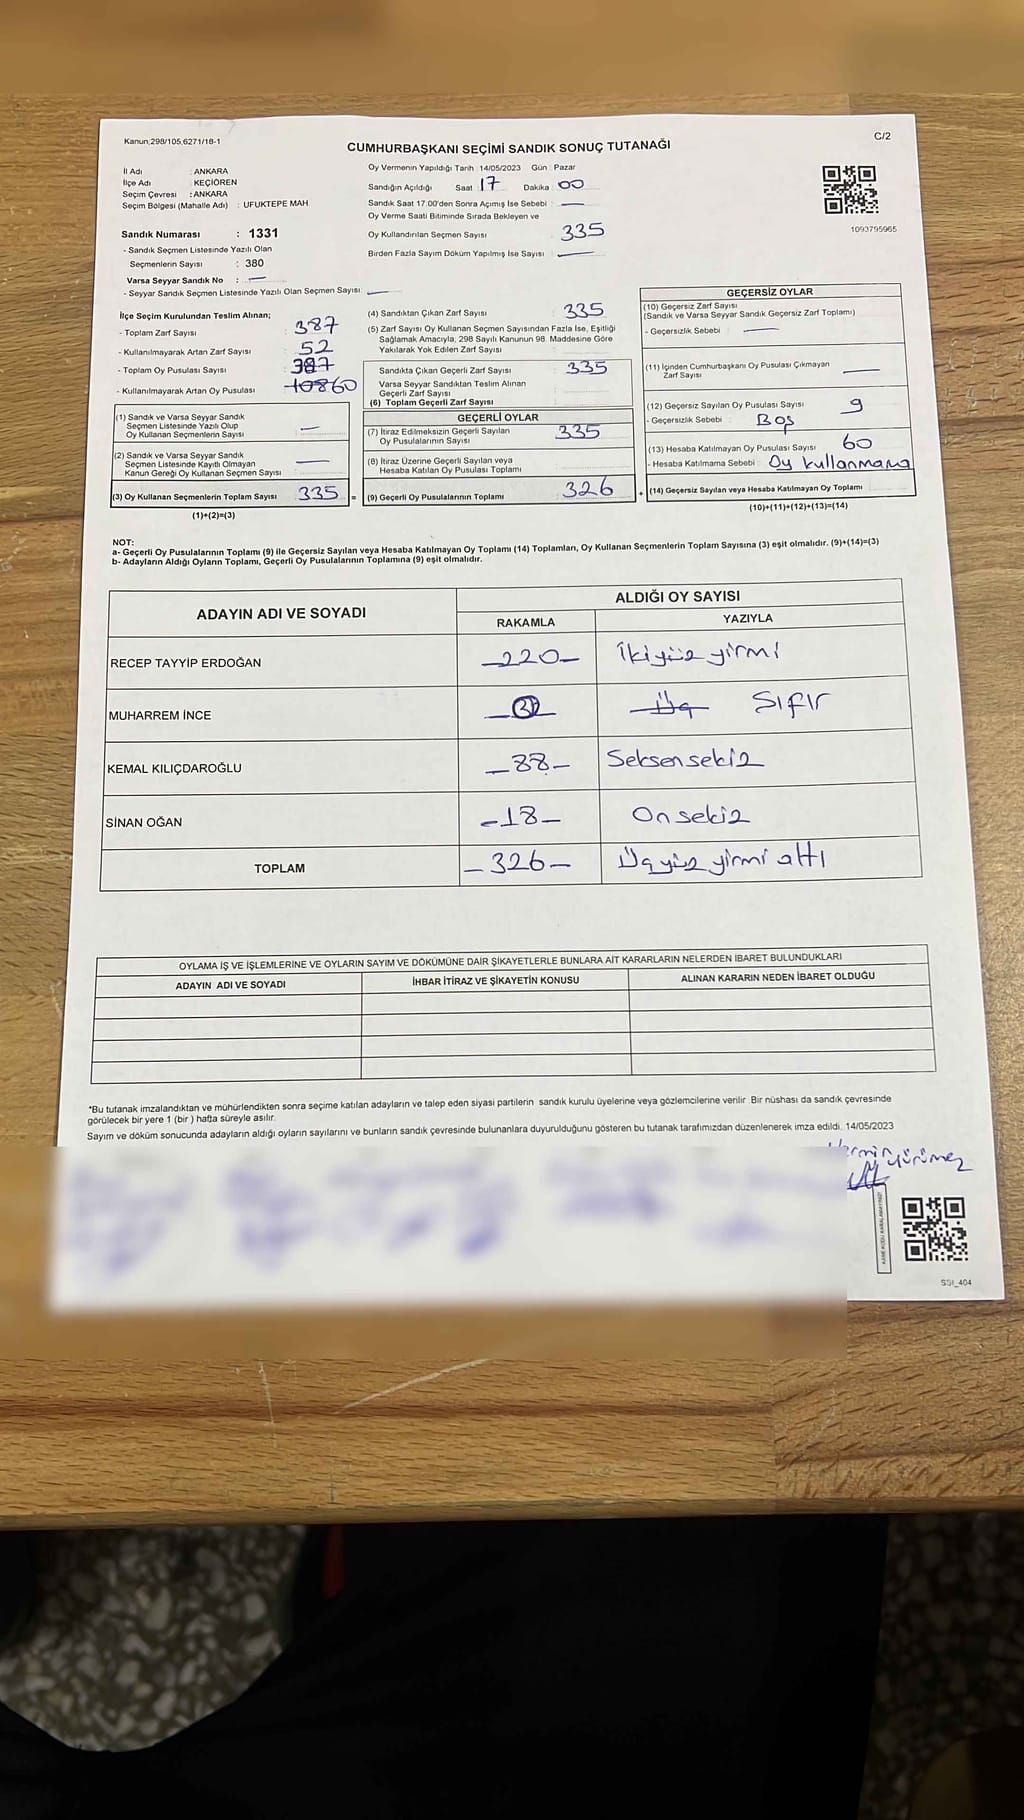 Kanun;298/105;6271/18-1
C/2
CUMHURBAŞKANI SEÇİMİ SANDIK SONUÇ TUTANAĞI
İl Adı : ANKARA
İlçe Adı : KEÇİÖREN
Seçim Çevresi : ANKARA
Seçim Bölgesi (Mahalle Adı) : UFUKTEPE MAH
Sandık Numarası : 1331
- Sandık Seçmen Listesinde Yazılı Olan
Seçmenlerin Sayısı : 380
Varsa Seyyar Sandık No : —
- Seyyar Sandık Seçmen Listesinde Yazılı Olan Seçmen Sayısı: —
Oy Vermenin Yapıldığı Tarih : 14/05/2023 Gün : Pazar
Sandığın Açıldığı Saat 17 Dakika 00
Sandık Saat 17.00'den Sonra Açımış İse Sebebi : —
Oy Verme Saati Bitiminde Sırada Bekleyen ve
Oy Kullandırılan Seçmen Sayısı : 335
Birden Fazla Sayım Döküm Yapılmış İse Sayısı : —
1093795965
İlçe Seçim Kurulundan Teslim Alınan;
- Toplam Zarf Sayısı : 387
- Kullanılmayarak Artan Zarf Sayısı : 52
- Toplam Oy Pusulası Sayısı : 387
- Kullanılmayarak Artan Oy Pusulası : 60
(1) Sandık ve Varsa Seyyar Sandık
Seçmen Listesinde Yazılı Olup
Oy Kullanan Seçmenlerin Sayısı —
(2) Sandık ve Varsa Seyyar Sandık
Seçmen Listesinde Kayıtlı Olmayan
Kanun Gereği Oy Kullanan Seçmen Sayısı —
(3) Oy Kullanan Seçmenlerin Toplam Sayısı : 335 =
(1)+(2)=(3)
(4) Sandıktan Çıkan Zarf Sayısı 335
(5) Zarf Sayısı Oy Kullanan Seçmen Sayısından Fazla İse, Eşitliği
Sağlamak Amacıyla, 298 Sayılı Kanunun 98. Maddesine Göre
Yakılarak Yok Edilen Zarf Sayısı
Sandıkta Çıkan Geçerli Zarf Sayısı 335
Varsa Seyyar Sandıktan Teslim Alınan
Geçerli Zarf Sayısı
(6) Toplam Geçerli Zarf Sayısı
GEÇERLİ OYLAR
(7) İtiraz Edilmeksizin Geçerli Sayılan
Oy Pusulalarının Sayısı 335
(8) İtiraz Üzerine Geçerli Sayılan veya
Hesaba Katılan Oy Pusulası Toplamı
(9) Geçerli Oy Pusulalarının Toplamı 326 +
GEÇERSİZ OYLAR
(10) Geçersiz Zarf Sayısı
(Sandık ve Varsa Seyyar Sandık Geçersiz Zarf Toplamı)
- Geçersizlik Sebebi : —
(11) İçinden Cumhurbaşkanı Oy Pusulası Çıkmayan
Zarf Sayısı —
(12) Geçersiz Sayılan Oy Pusulası Sayısı 9
- Geçersizlik Sebebi : Boş
(13) Hesaba Katılmayan Oy Pusulası Sayısı 60
- Hesaba Katılmama Sebebi : Oy kullanmama
(14) Geçersiz Sayılan veya Hesaba Katılmayan Oy Toplamı
(10)+(11)+(12)+(13)=(14)
NOT:
a- Geçerli Oy Pusulalarının Toplamı (9) ile Geçersiz Sayılan veya Hesaba Katılmayan Oy Toplamı (14) Toplamları, Oy Kullanan Seçmenlerin Toplam Sayısına (3) eşit olmalıdır. (9)+(14)=(3)
b- Adayların Aldığı Oyların Toplamı, Geçerli Oy Pusulalarının Toplamına (9) eşit olmalıdır.
ADAYIN ADI VE SOYADI ALDIĞI OY SAYISI
RAKAMLA YAZIYLA
RECEP TAYYİP ERDOĞAN —220— İkiyüz yirmi
MUHARREM İNCE Üç Sıfır
KEMAL KILIÇDAROĞLU —88— Seksen sekiz
SİNAN OĞAN —18— On sekiz
TOPLAM —326— Üçyüz yirmi altı
OYLAMA İŞ VE İŞLEMLERİNE VE OYLARIN SAYIM VE DÖKÜMÜNE DAİR ŞİKAYETLERLE BUNLARA AİT KARARLARIN NELERDEN İBARET BULUNDUKLARI
ADAYIN ADI VE SOYADI İHBAR İTİRAZ VE ŞİKAYETİN KONUSU ALINAN KARARIN NEDEN İBARET OLDUĞU
*Bu tutanak imzalandıktan ve mühürlendikten sonra seçime katılan adayların ve talep eden siyasi partilerin sandık kurulu üyelerine veya gözlemcilerine verilir. Bir nüshası da sandık çevresinde
görülecek bir yere 1 (bir ) hafta süreyle asılır.
Sayım ve döküm sonucunda adayların aldığı oyların sayılarını ve bunların sandık çevresinde bulunanlara duyurulduğunu gösteren bu tutanak tarafımızdan düzenlenerek imza edildi. 14/05/2023
SSI_404